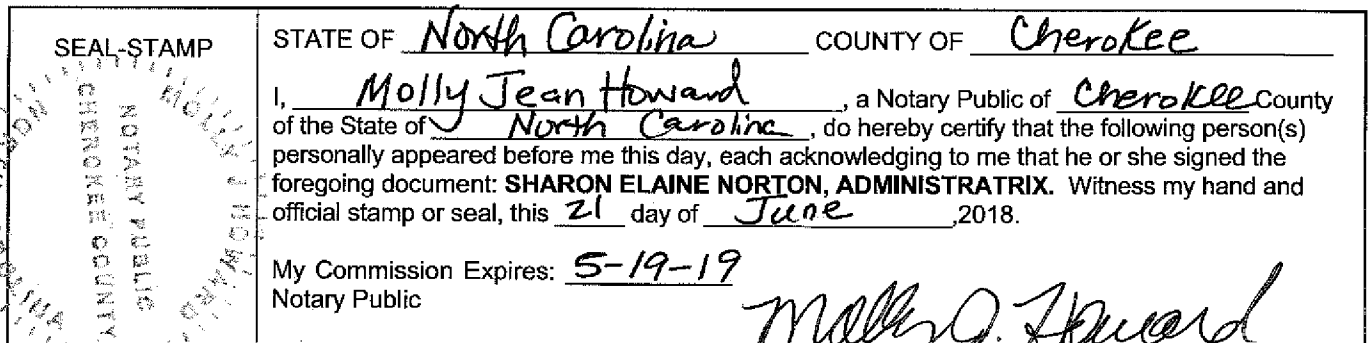 SEAL-STAMP
MOLLY J HOWARD
NOTARY PUBLIC
CHEROKEE COUNTY
STATE OF North Carolina COUNTY OF Cherokee
I, Molly Jean Howard, a Notary Public of Cherokee County
of the State of North Carolina, do hereby certify that the following person(s)
personally appeared before me this day, each acknowledging to me that he or she signed the
foregoing document: SHARON ELAINE NORTON, ADMINISTRATRIX. Witness my hand and
official stamp or seal, this 21 day of June,2018.
My Commission Expires: 5-19-19
Notary Public
Molly J. Howard